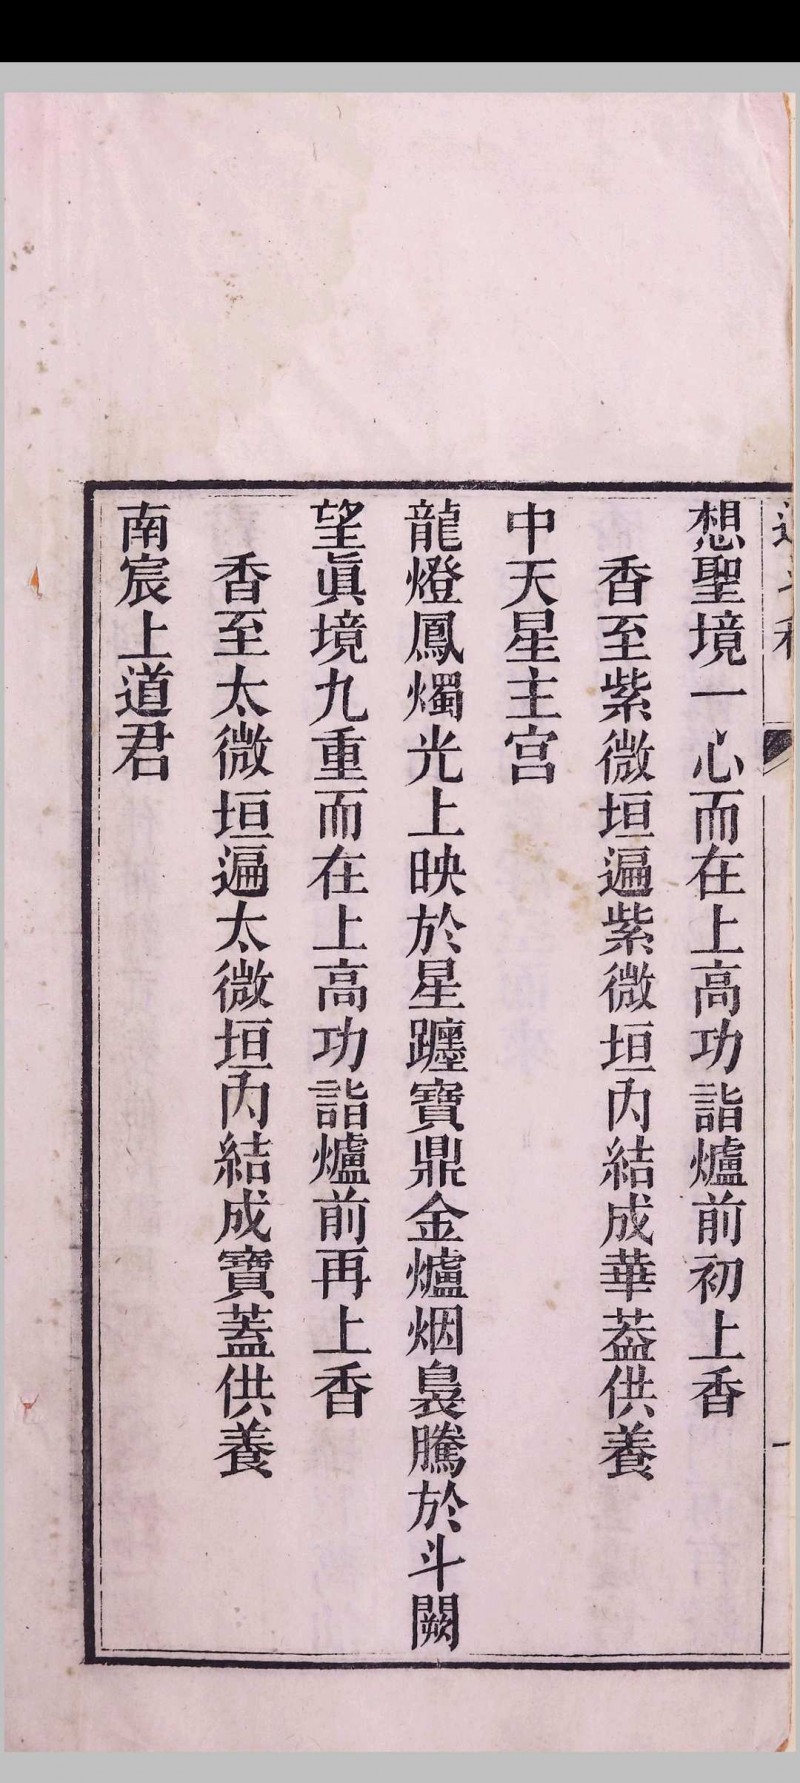 想聖境一心而在上高功詣爐前初上香
香至紫微垣遍紫微垣內結成華蓋供養
中天星主宮
龍燈鳳燭光上映於星躔寶鼎金爐烟裊騰於斗闕
望眞境九重而在上高功詣爐前再上香
香至太微垣遍太微垣內結成寶蓋供養
南宸上道君